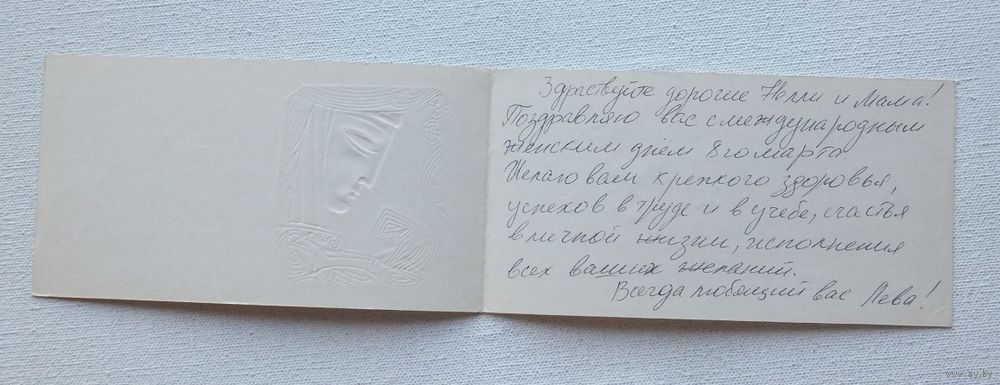 Здраствуйте дорогие Нелли и Мама!
Поздравляю вас с международным
женским днём 8го марта
Желаю вам крепкого здоровья,
успехов в труде и в учебе, счастья
в личной жизни, исполнения
всех ваших желаний.
Всегда любящий вас Лева!
www.ay.by